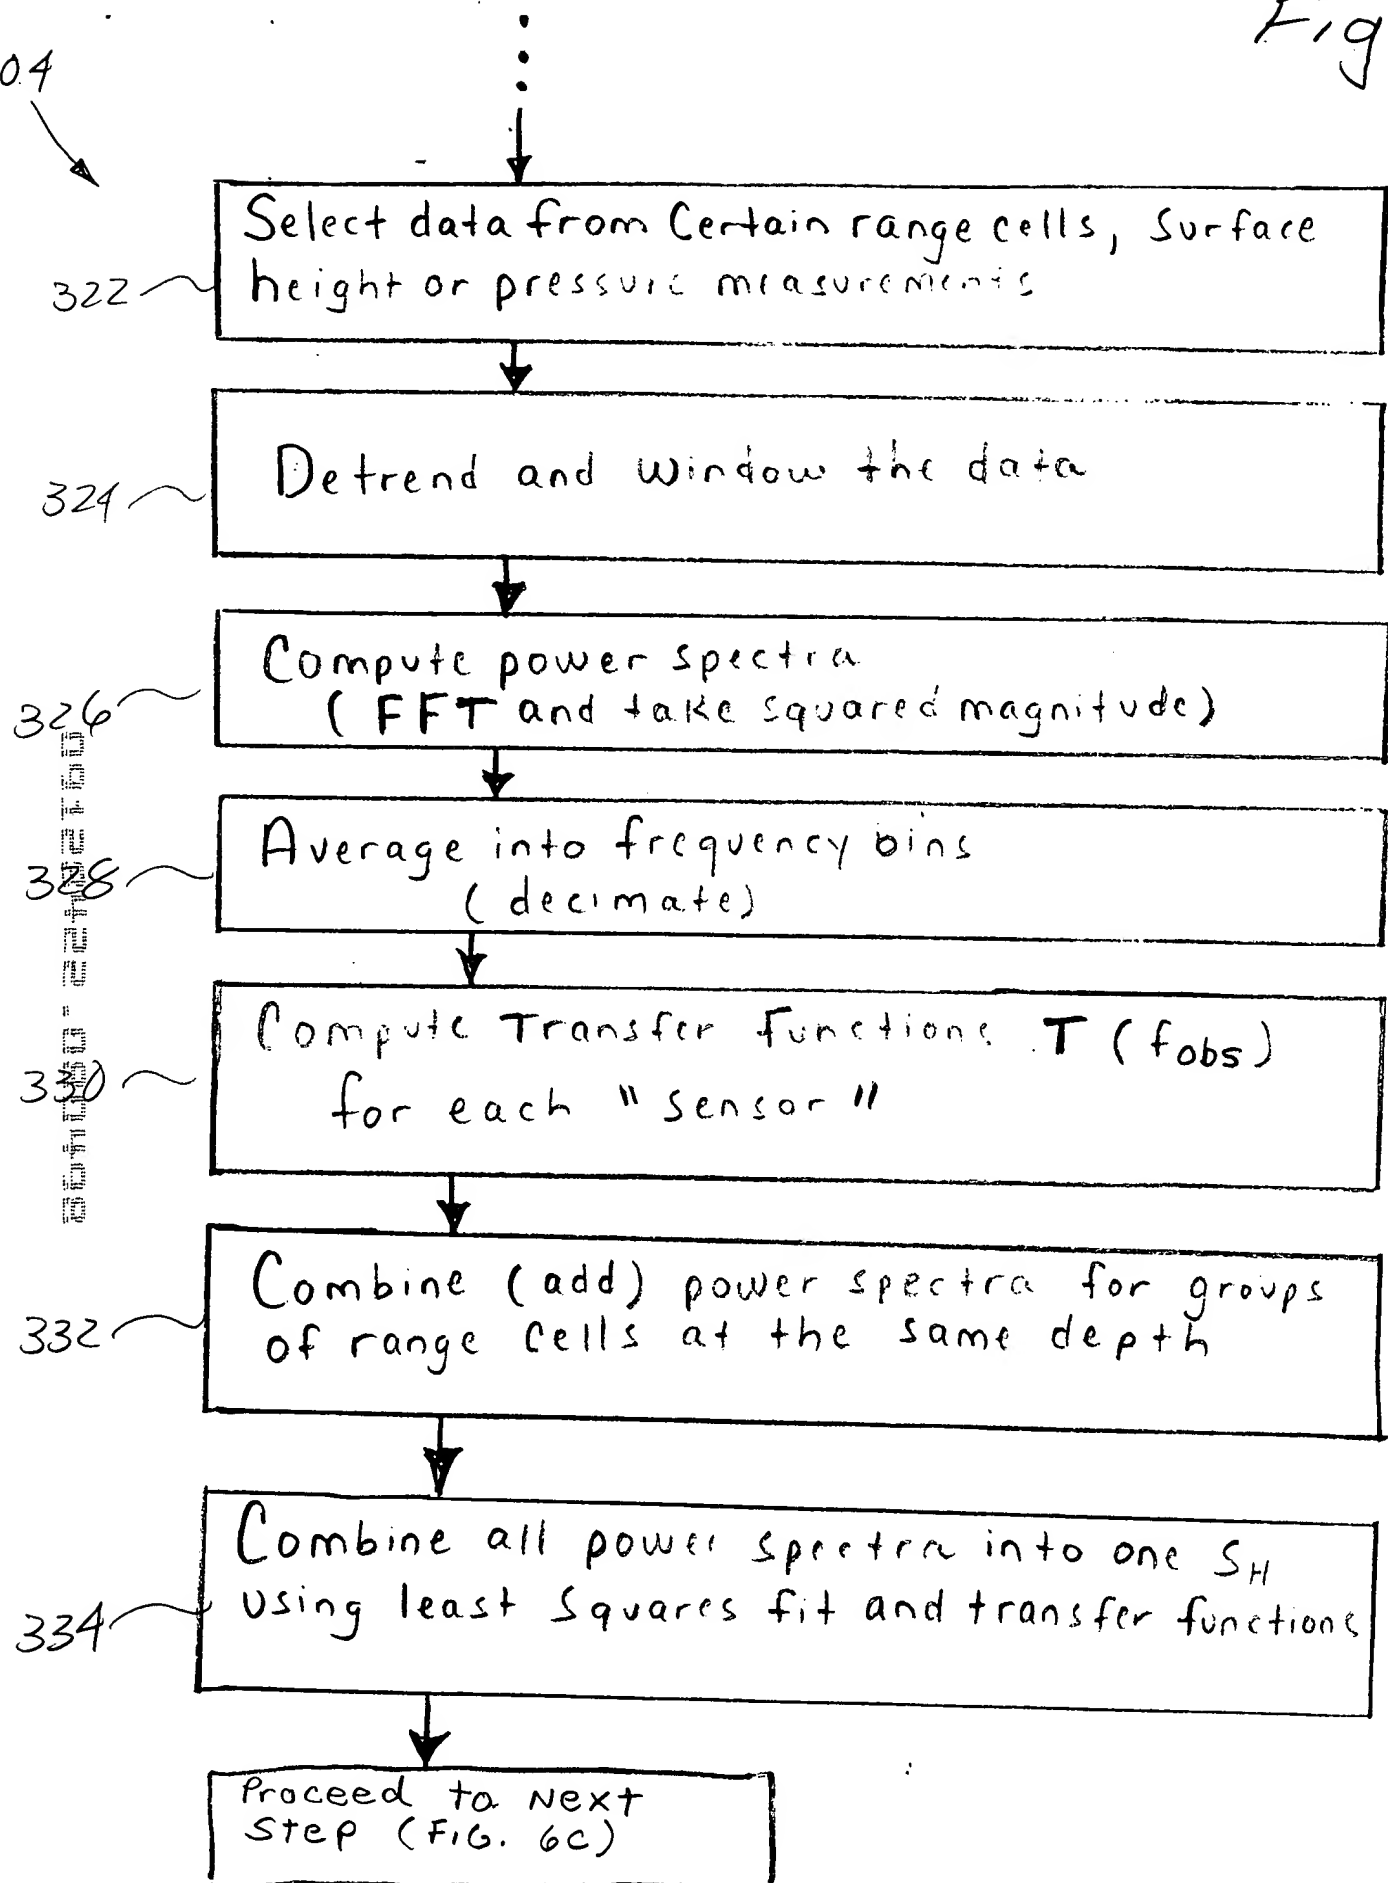 Fig
04
Select data from Certain range cells, surface
height or pressure measurements
322
Detrend and window the data
324
Compute power spectra
(FFT and take squared magnitude)
326
Average into frequency bins
(decimate)
328
Compute Transfer Functions T (fobs)
for each "sensor"
330
Combine (add) power spectra for groups
of range cells at the same depth
332
Combine all power spectra into one SH
using least squares fit and transfer functions
334
Proceed to Next
Step (FIG. 6C)